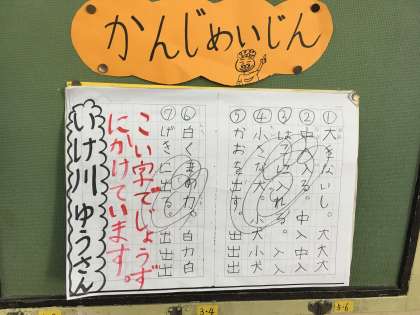 かんじめいじん
①大をないし。大大大
②中に入る。中入中入
③はこに入れる。入入
④小さな犬。小犬小犬
⑤かおを出す。出出出
⑥白くまの力や白力白
⑦げきに出る。出出出
こい字でじょうず
にかけています。
いけ川ゆうさん
3・4
5・6